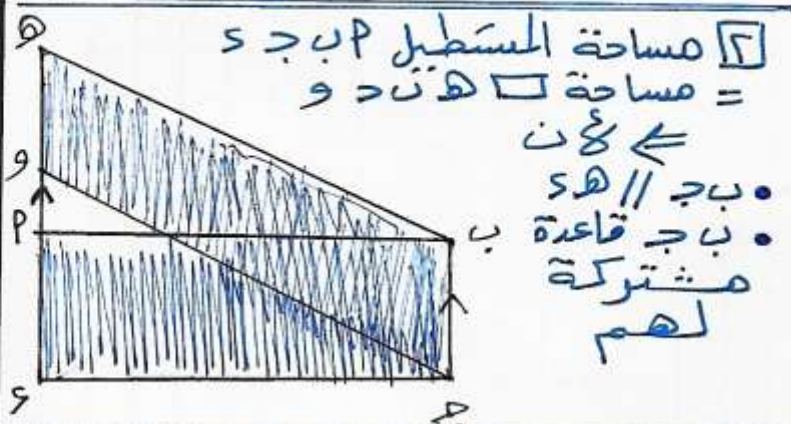 ٢ مساحة المستطيل ٩ ب ج د
= مساحة ▱ ه ب ج و
⇐ لأن
• ب ج // ه د
• ب ج قاعدة
مشتركة
لهم
ه
و
٩
ب
د
ج